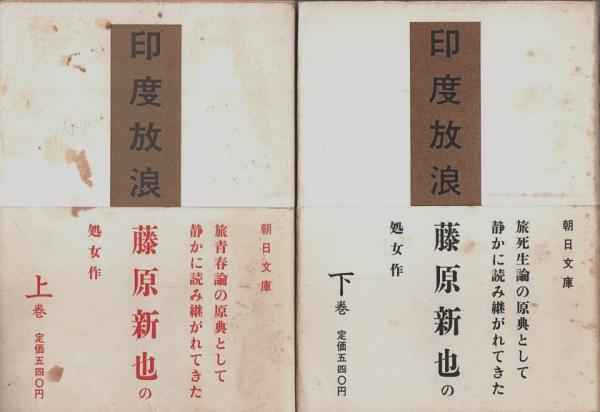 印度放浪
朝日文庫
旅青春論の原典として
静かに読み継がれてきた
藤原新也の
処女作
上巻
定価五四〇円
印度放浪
朝日文庫
旅死生論の原典として
静かに読み継がれてきた
藤原新也の
処女作
下巻
定価五四〇円